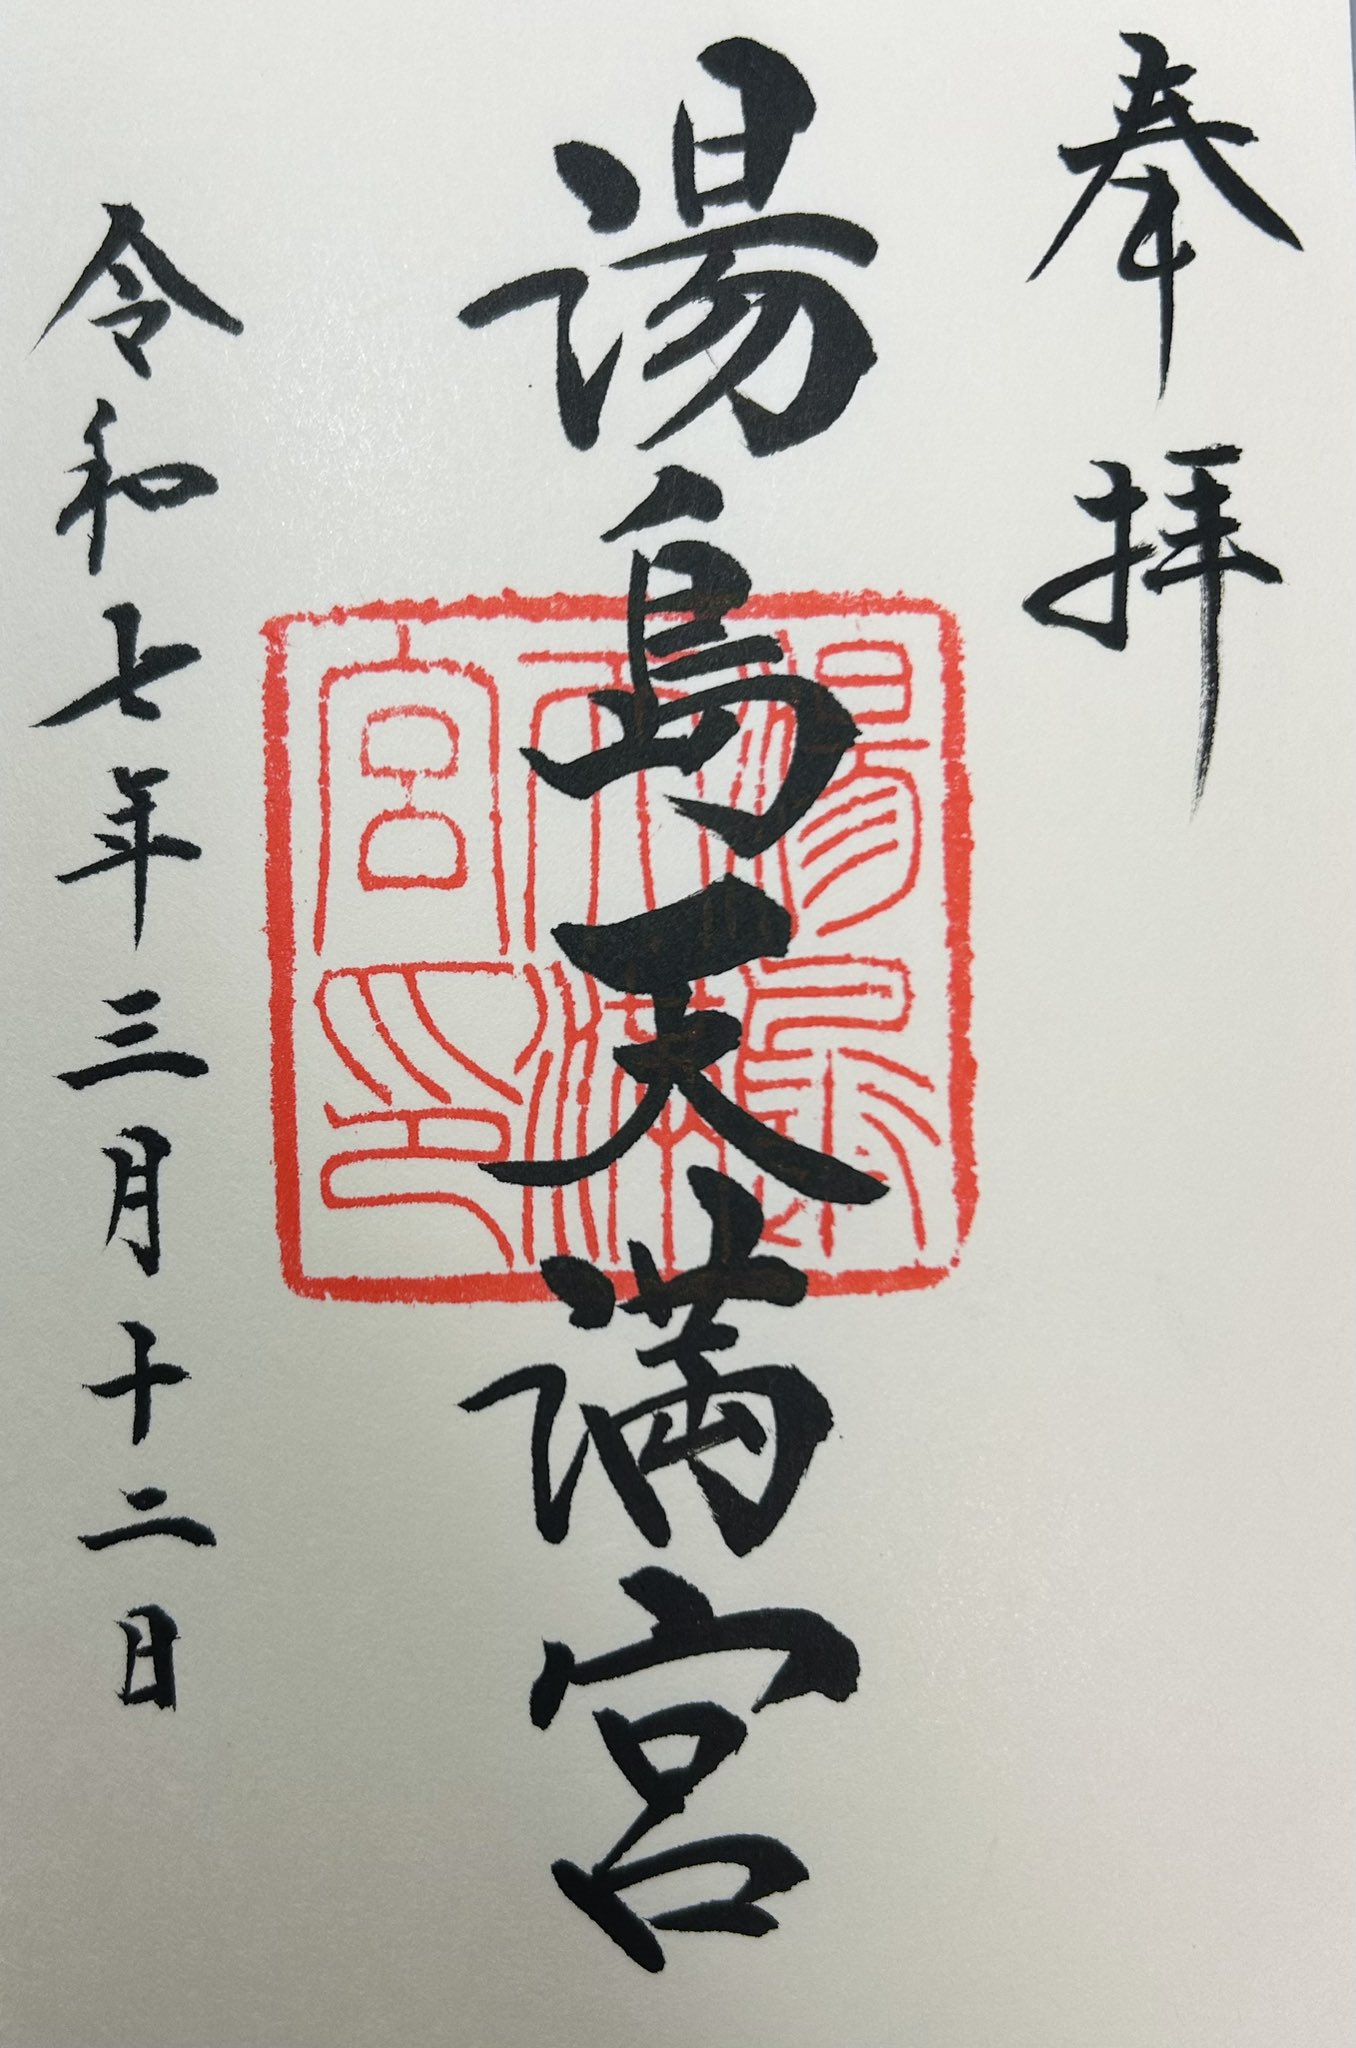 奉拝
湯島天満宮
湯島天満宮印
令和七年三月十二日